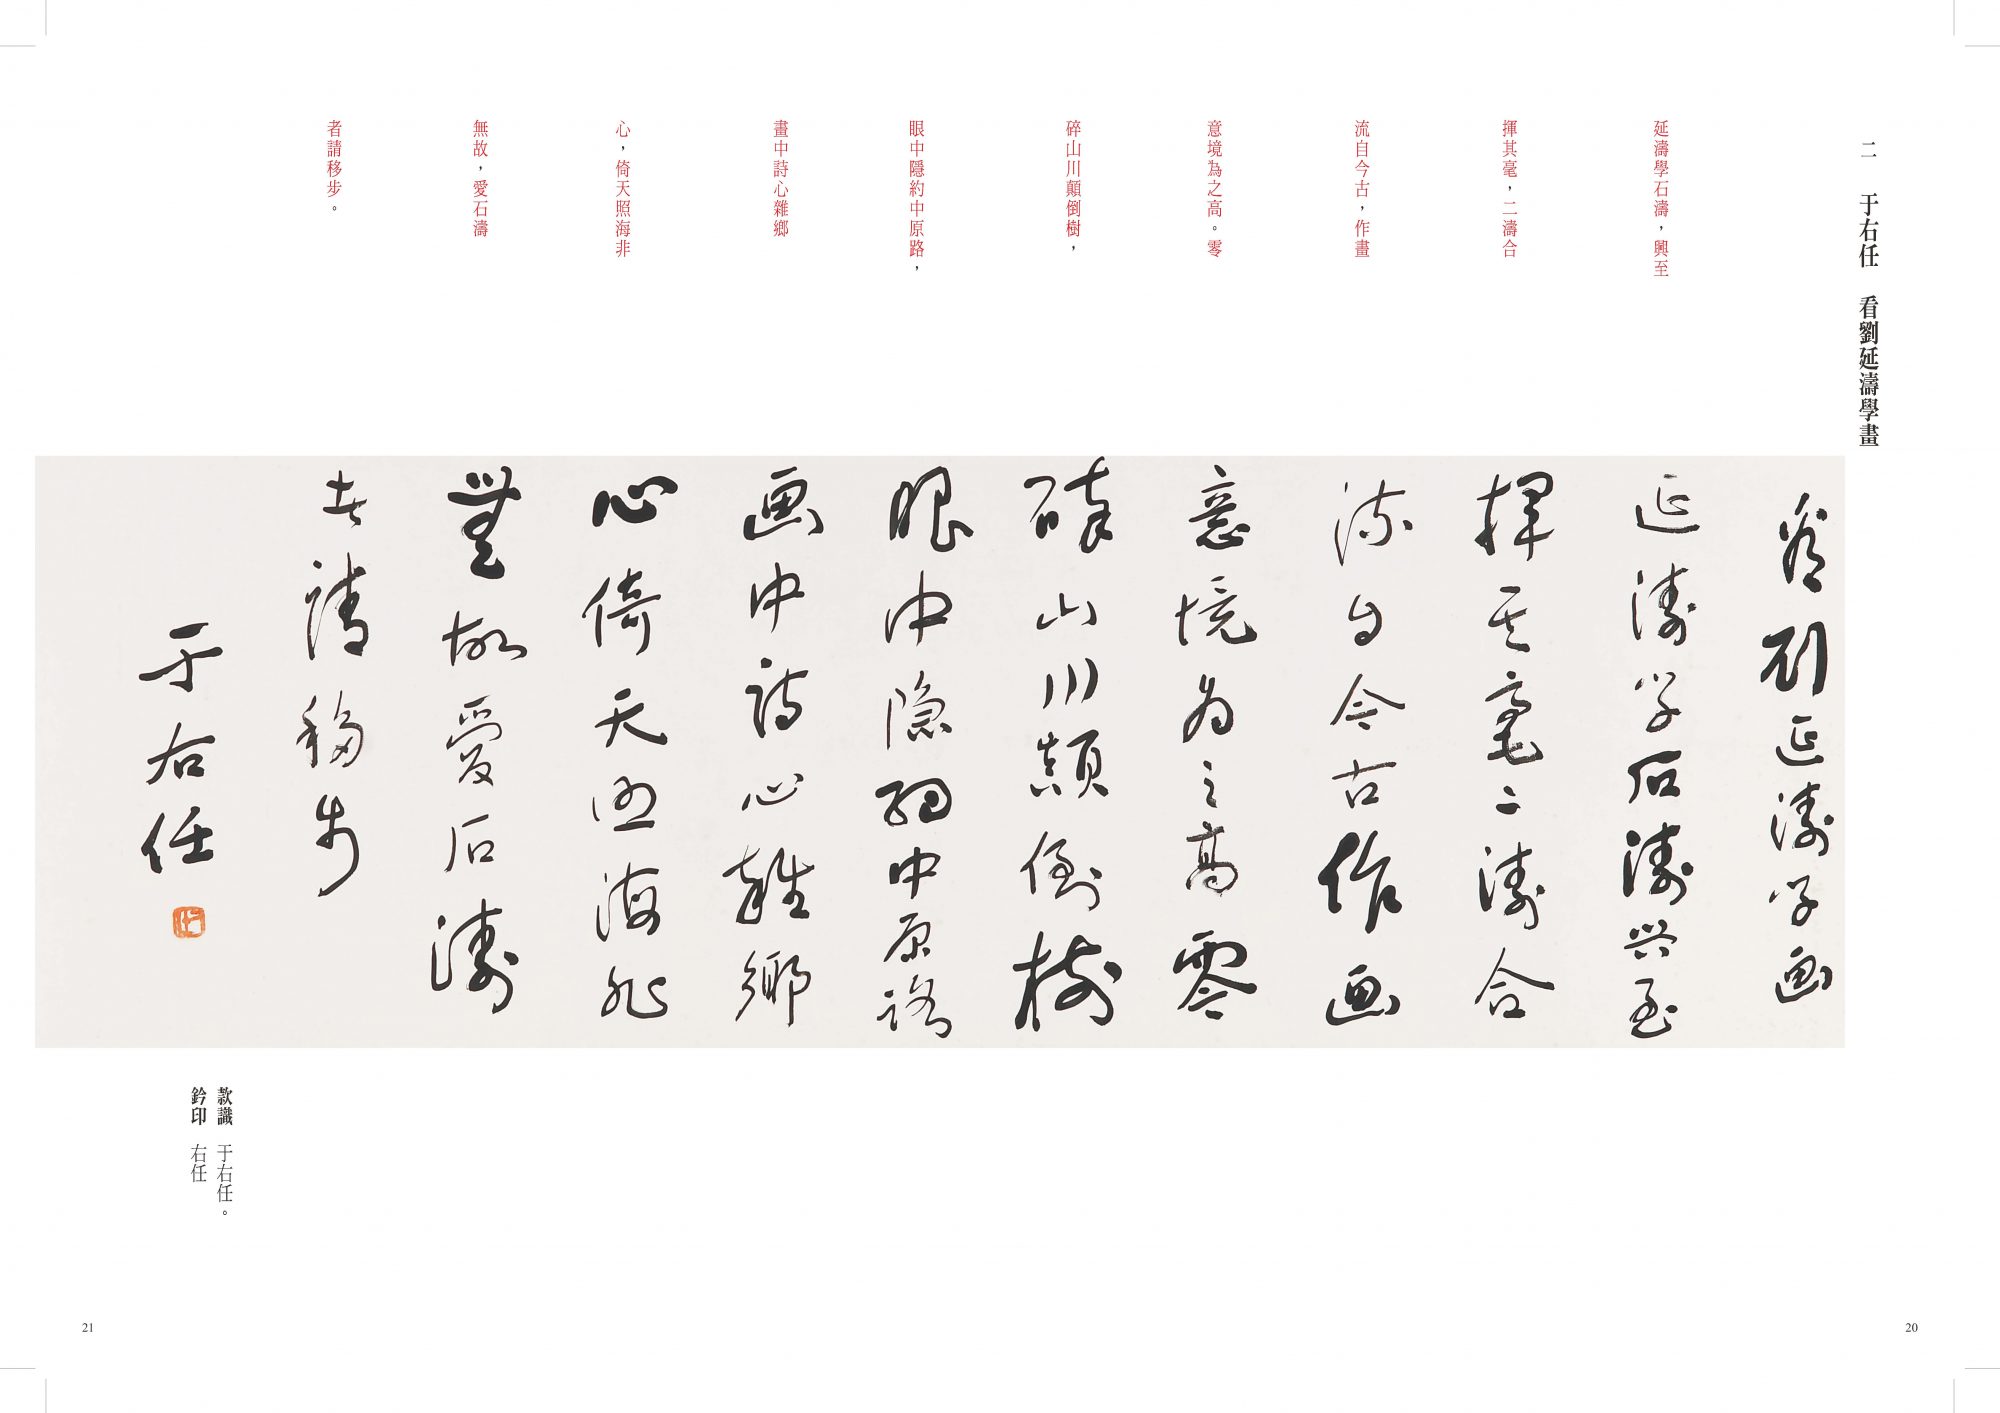 二　于右任　看劉延濤學畫
延濤學石濤，興至
揮其毫，二濤合
流自今古，作畫
意境為之高。零
碎山川顛倒樹，
眼中隱約中原路，
畫中詩心雜鄉
心，倚天照海非
無故，愛石濤
者請移步。
看劉延濤学画
延濤学石濤兴至
揮其毫二濤合
流自今古作画
意境为之高零
碎山川顛倒樹
眼中隐約中原路
画中詩心雜鄉
心倚天照海非
無故愛石濤
者請移步
于右任
右任
款識　于右任。
鈐印　右任
21
20